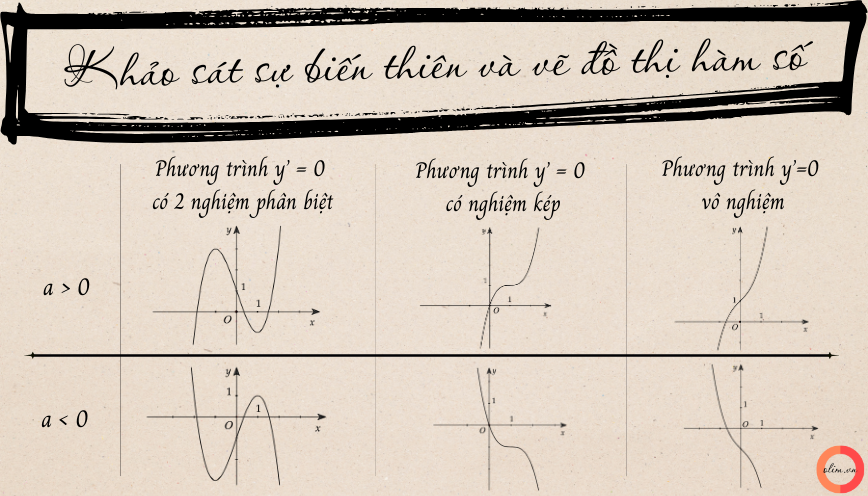 Khảo sát sự biến thiên và vẽ đồ thị hàm số
Phương trình y' = 0
có 2 nghiệm phân biệt
Phương trình y' = 0
có nghiệm kép
Phương trình y'=0
vô nghiệm
a > 0
y
1
1
O
x
y
1
1
O
x
y
1
1
O
x
a < 0
y
1
1
O
x
y
1
1
O
x
y
1
1
O
x
olim.vn